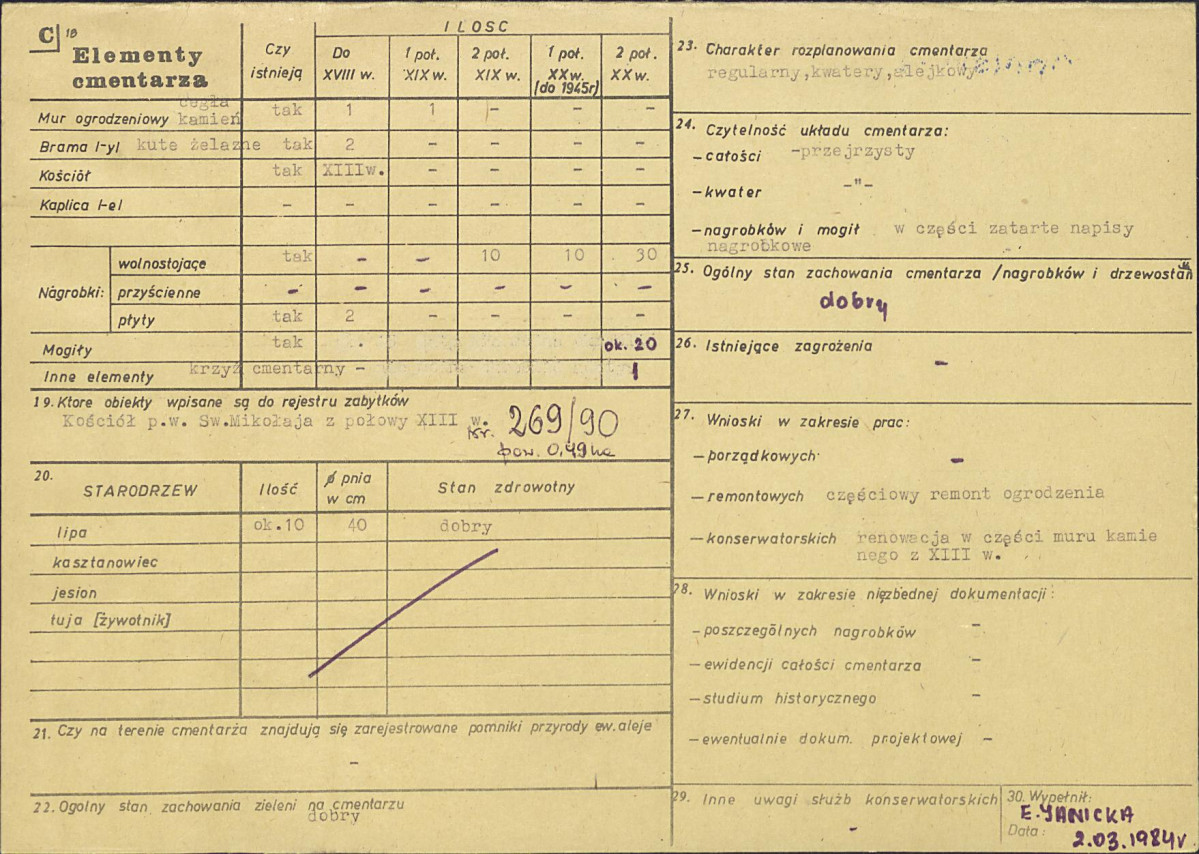 C 18
Elementy
cmentarza
Czy
istnieją
ILOSC
Do
XVIII w.
1 poł.
XIX w.
2 poł.
XIX w.
1 poł.
XX w.
(do 1945r)
2 poł.
XX w.
Mur ogrodzeniowy cegła kamień tak 1 1 - - -
Brama I-yl kute żelazne tak 2 - - - -
Kościół tak XIIIw. - - - -
Kaplica I-el - - - - - -
Nagrobki:
wolnostojące tak - - 10 10 30
przyścienne - - - - - -
płyty tak 2 - - - -
Mogiły tak ok. 20
Inne elementy krzyż cmentarny - 1
19. Ktore obiekty wpisane są do rejestru zabytków
Kościół p.w. Sw.Mikołaja z połowy XIII w.
Nr. 269/90
pow. 0,49 ha
20.
STARODRZEW Ilość ø pnia w cm Stan zdrowotny
lipa ok.10 40 dobry
kasztanowiec
jesion
tuja [żywotnik]
21. Czy na terenie cmentarza znajdują się zarejestrowane pomniki przyrody ew. aleje
-
22. Ogolny stan zachowania zieleni na cmentarzu
dobry
23. Charakter rozplanowania cmentarza
regularny,kwatery,alejkowy
24. Czytelność układu cmentarza:
- całości -przejrzysty
- kwater -"-
- nagrobków i mogił w części zatarte napisy
nagrobkowe
25. Ogólny stan zachowania cmentarza /nagrobków i drzewostan
dobry
26. Istniejące zagrożenia
-
27. Wnioski w zakresie prac:
- porządkowych -
- remontowych częściowy remont ogrodzenia
- konserwatorskich renowacja w części muru kamie
nego z XIII w.
28. Wnioski w zakresie niezbednej dokumentacji:
- poszczególnych nagrobków -
- ewidencji całości cmentarza -
- studium historycznego -
- ewentualnie dokum. projektowej -
29. Inne uwagi służb konserwatorskich
-
30. Wypełnił:
E. JANICKA
Data: 2.03.1984r